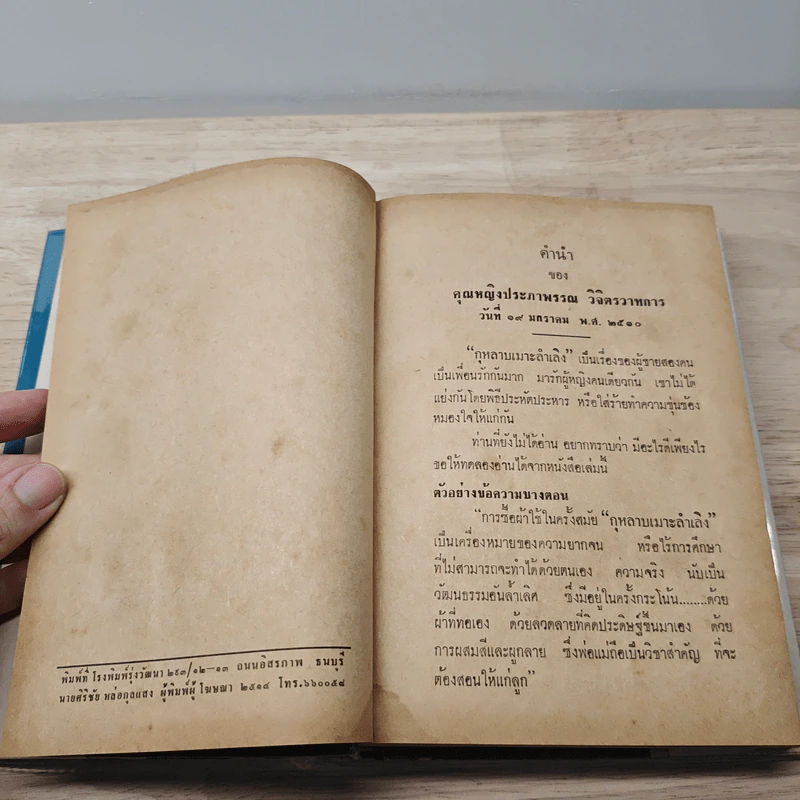 พิมพ์ที่ โรงพิมพ์รุ่งวัฒนา ๒๙๓/๑๒—๑๓ ถนนอิสรภาพ ธนบุรี
นายศิริชัย หล่อกุลแสง ผู้พิมพ์ผู้โฆษณา ๒๕๑๔ โทร.๖๖๐๐๕๘
คำนำ
ของ
คุณหญิงประภาพรรณ วิจิตรวาทการ
วันที่ ๑๙ มกราคม พ.ศ. ๒๕๑๐
“กุหลาบเมาะลำเลิง” เป็นเรื่องของผู้ชายสองคน
เป็นเพื่อนรักกันมาก มารักผู้หญิงคนเดียวกัน เขาไม่ได้
แย่งกันโดยพิธีประหัตประหาร หรือใส่ร้ายทำความขุ่นข้อง
หมองใจให้แก่กัน
ท่านที่ยังไม่ได้อ่าน อยากทราบว่า มีอะไรดีเพียงไร
ขอให้ทดลองอ่านได้จากหนังสือเล่มนี้
ตัวอย่างข้อความบางตอน
“การซื้อผ้าใช้ในครั้งสมัย “กุหลาบเมาะลำเลิง”
เป็นเครื่องหมายของความยากจน หรือไร้การศึกษา
ที่ไม่สามารถจะทำได้ด้วยตนเอง ความจริง นับเป็น
วัฒนธรรมอันล้ำเลิศ ซึ่งมีอยู่ในครั้งกระโน้น........ด้วย
ผ้าที่ทอเอง ด้วยลวดลายที่คิดประดิษฐ์ขึ้นมาเอง ด้วย
การผสมสีและผูกลาย ซึ่งพ่อแม่ถือเป็นวิชาสำคัญ ที่จะ
ต้องสอนให้แก่ลูก”